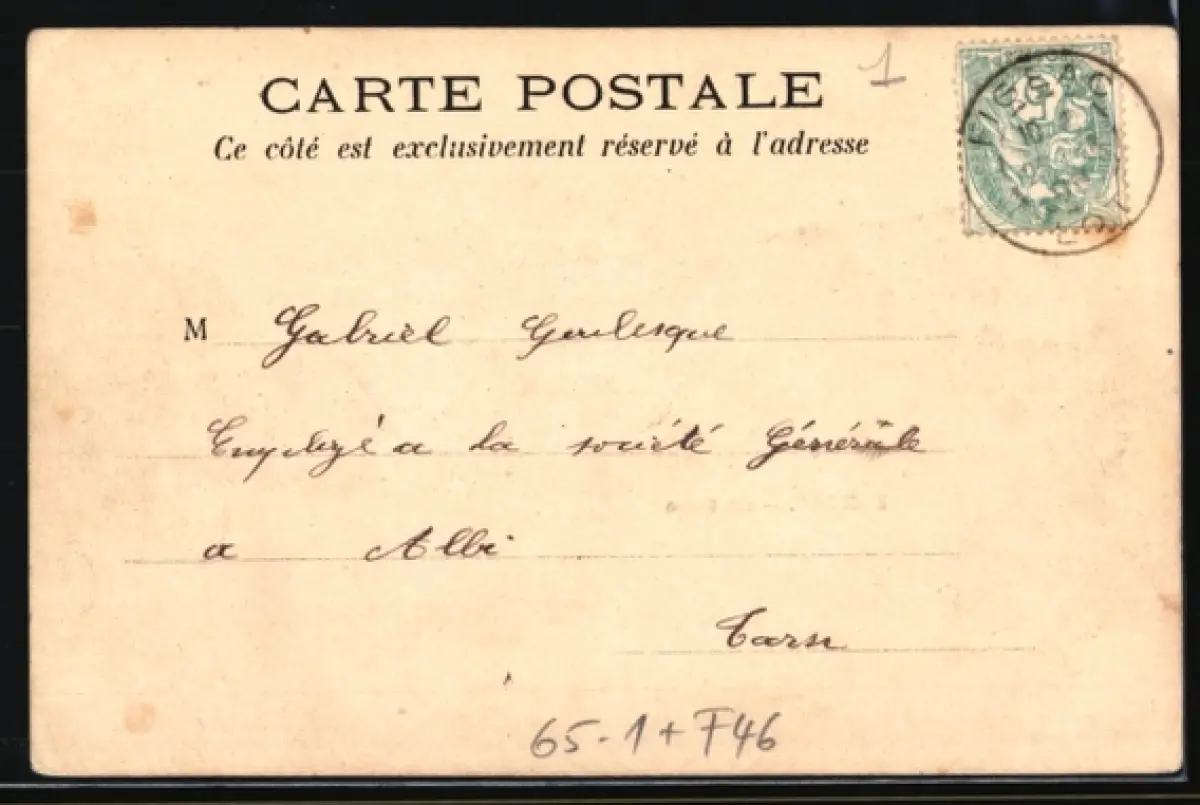 1
CARTE POSTALE
Ce côté est exclusivement réservé à l'adresse
FIGEAC
LOT
M Gabriel
Employé a la société Générale
a Albi
Tarn
65-1+F46